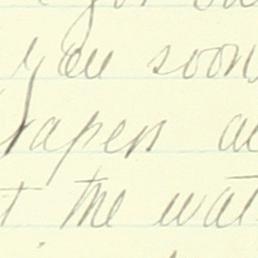 you soon
papers a
t the wat